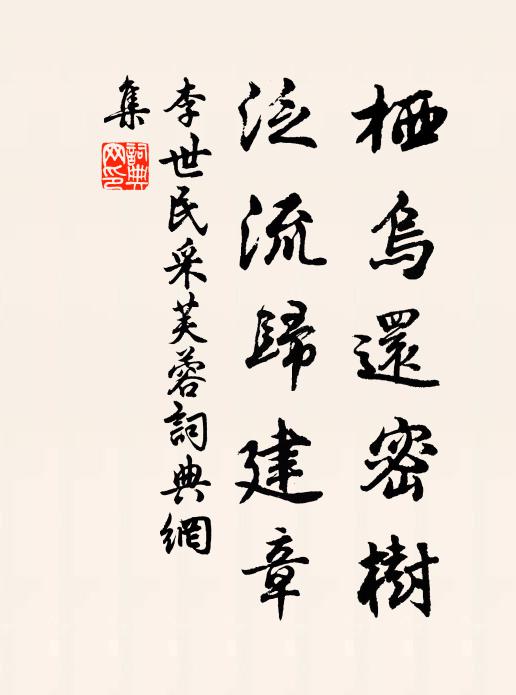 栖烏還密樹
泛流歸建章
李世民采芙蓉詞典網
集
詞典
网印